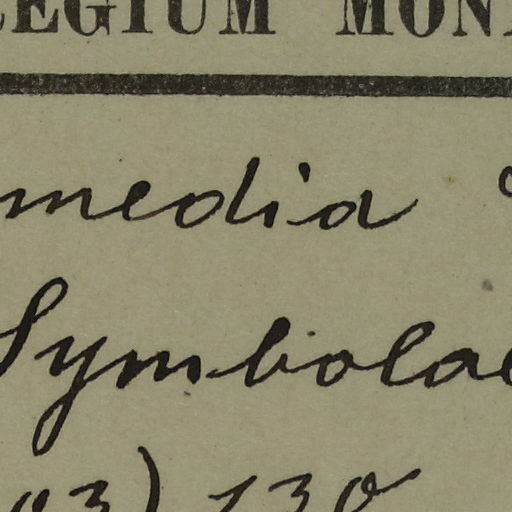 EGIUM MON
media
Symbolae
03) 130